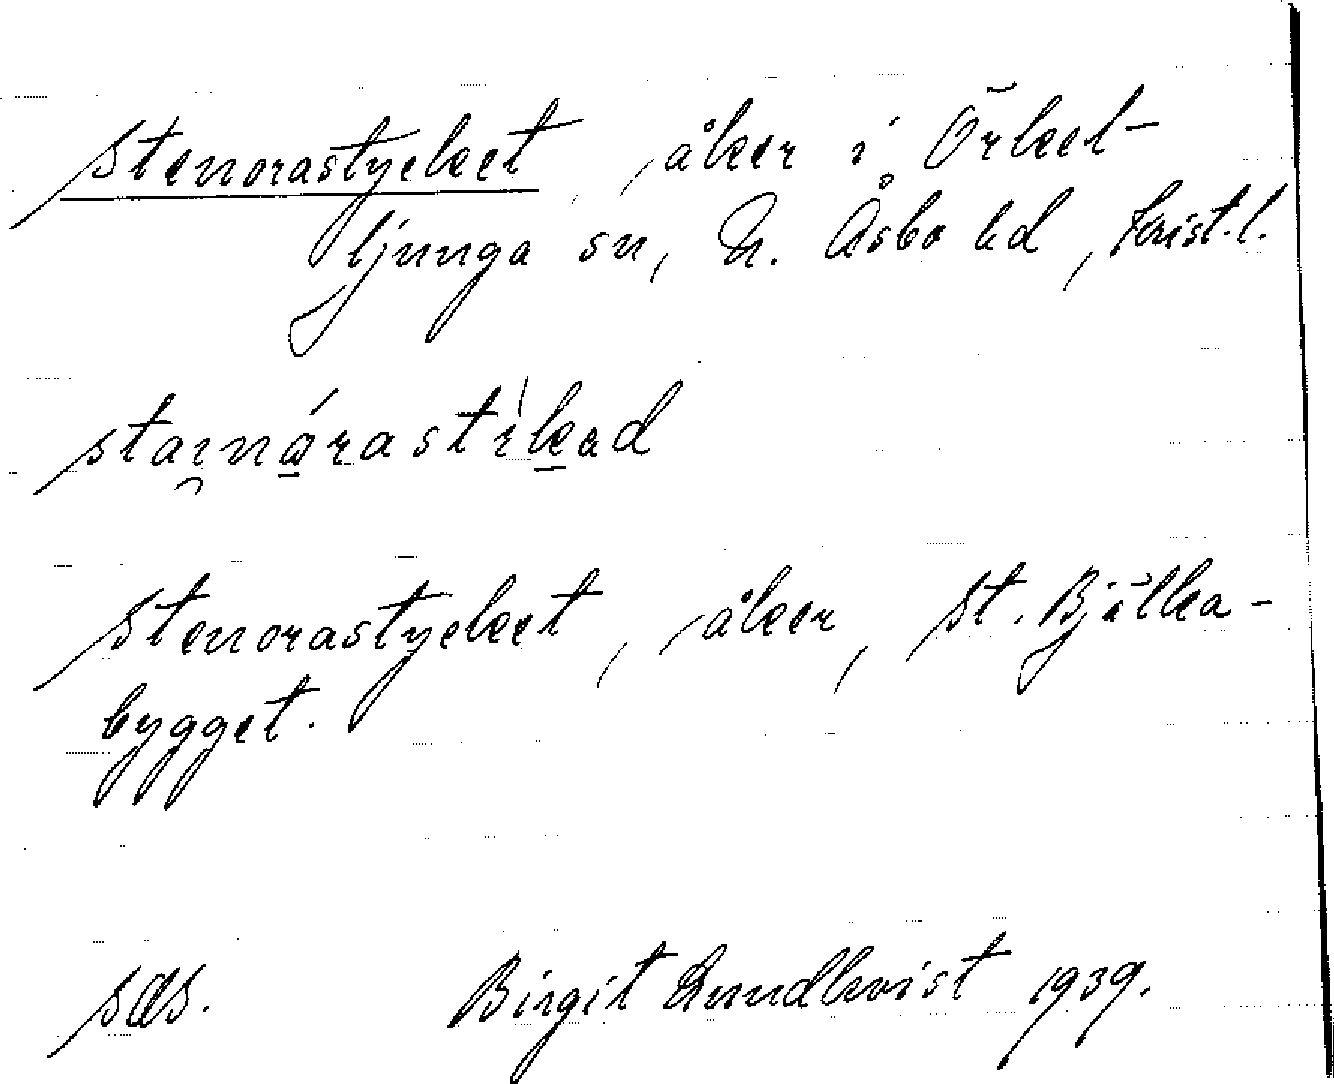 Stenorastycket, åker i Örkel-
ljunga sn, N. Åsbo hd, Krist.l.
stai̯nǻrastìkəd
Stenorastycket, åker, St. Bjälka-
bygget.
sds. Birgit Lundkvist 1939.